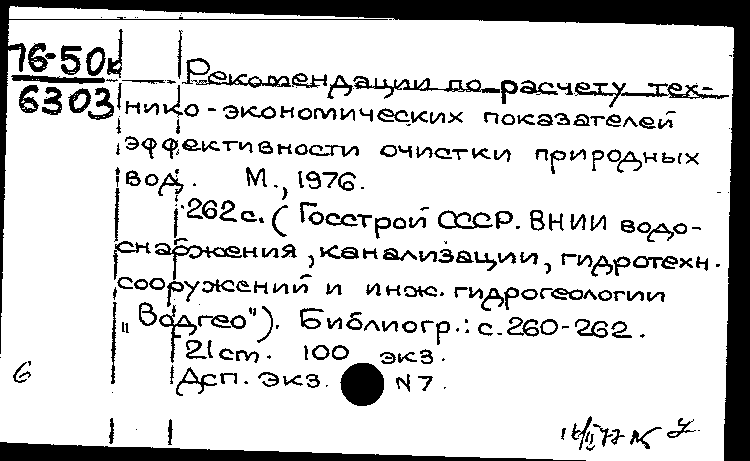 76-50к
6303
Рекомендации по расчету тех-
нико-экономических показателей
эффективности очистки природных
вод. М., 1976.
262с. (Госстрой СССР. ВНИИ водо-
снабжения, канализации, гидротехн.
сооружений и инж. гидрогеологии
"Водгео"). Библиогр.: с.260-262.
21 ст. 100 экз.
Дсп. Экз. N7.
6